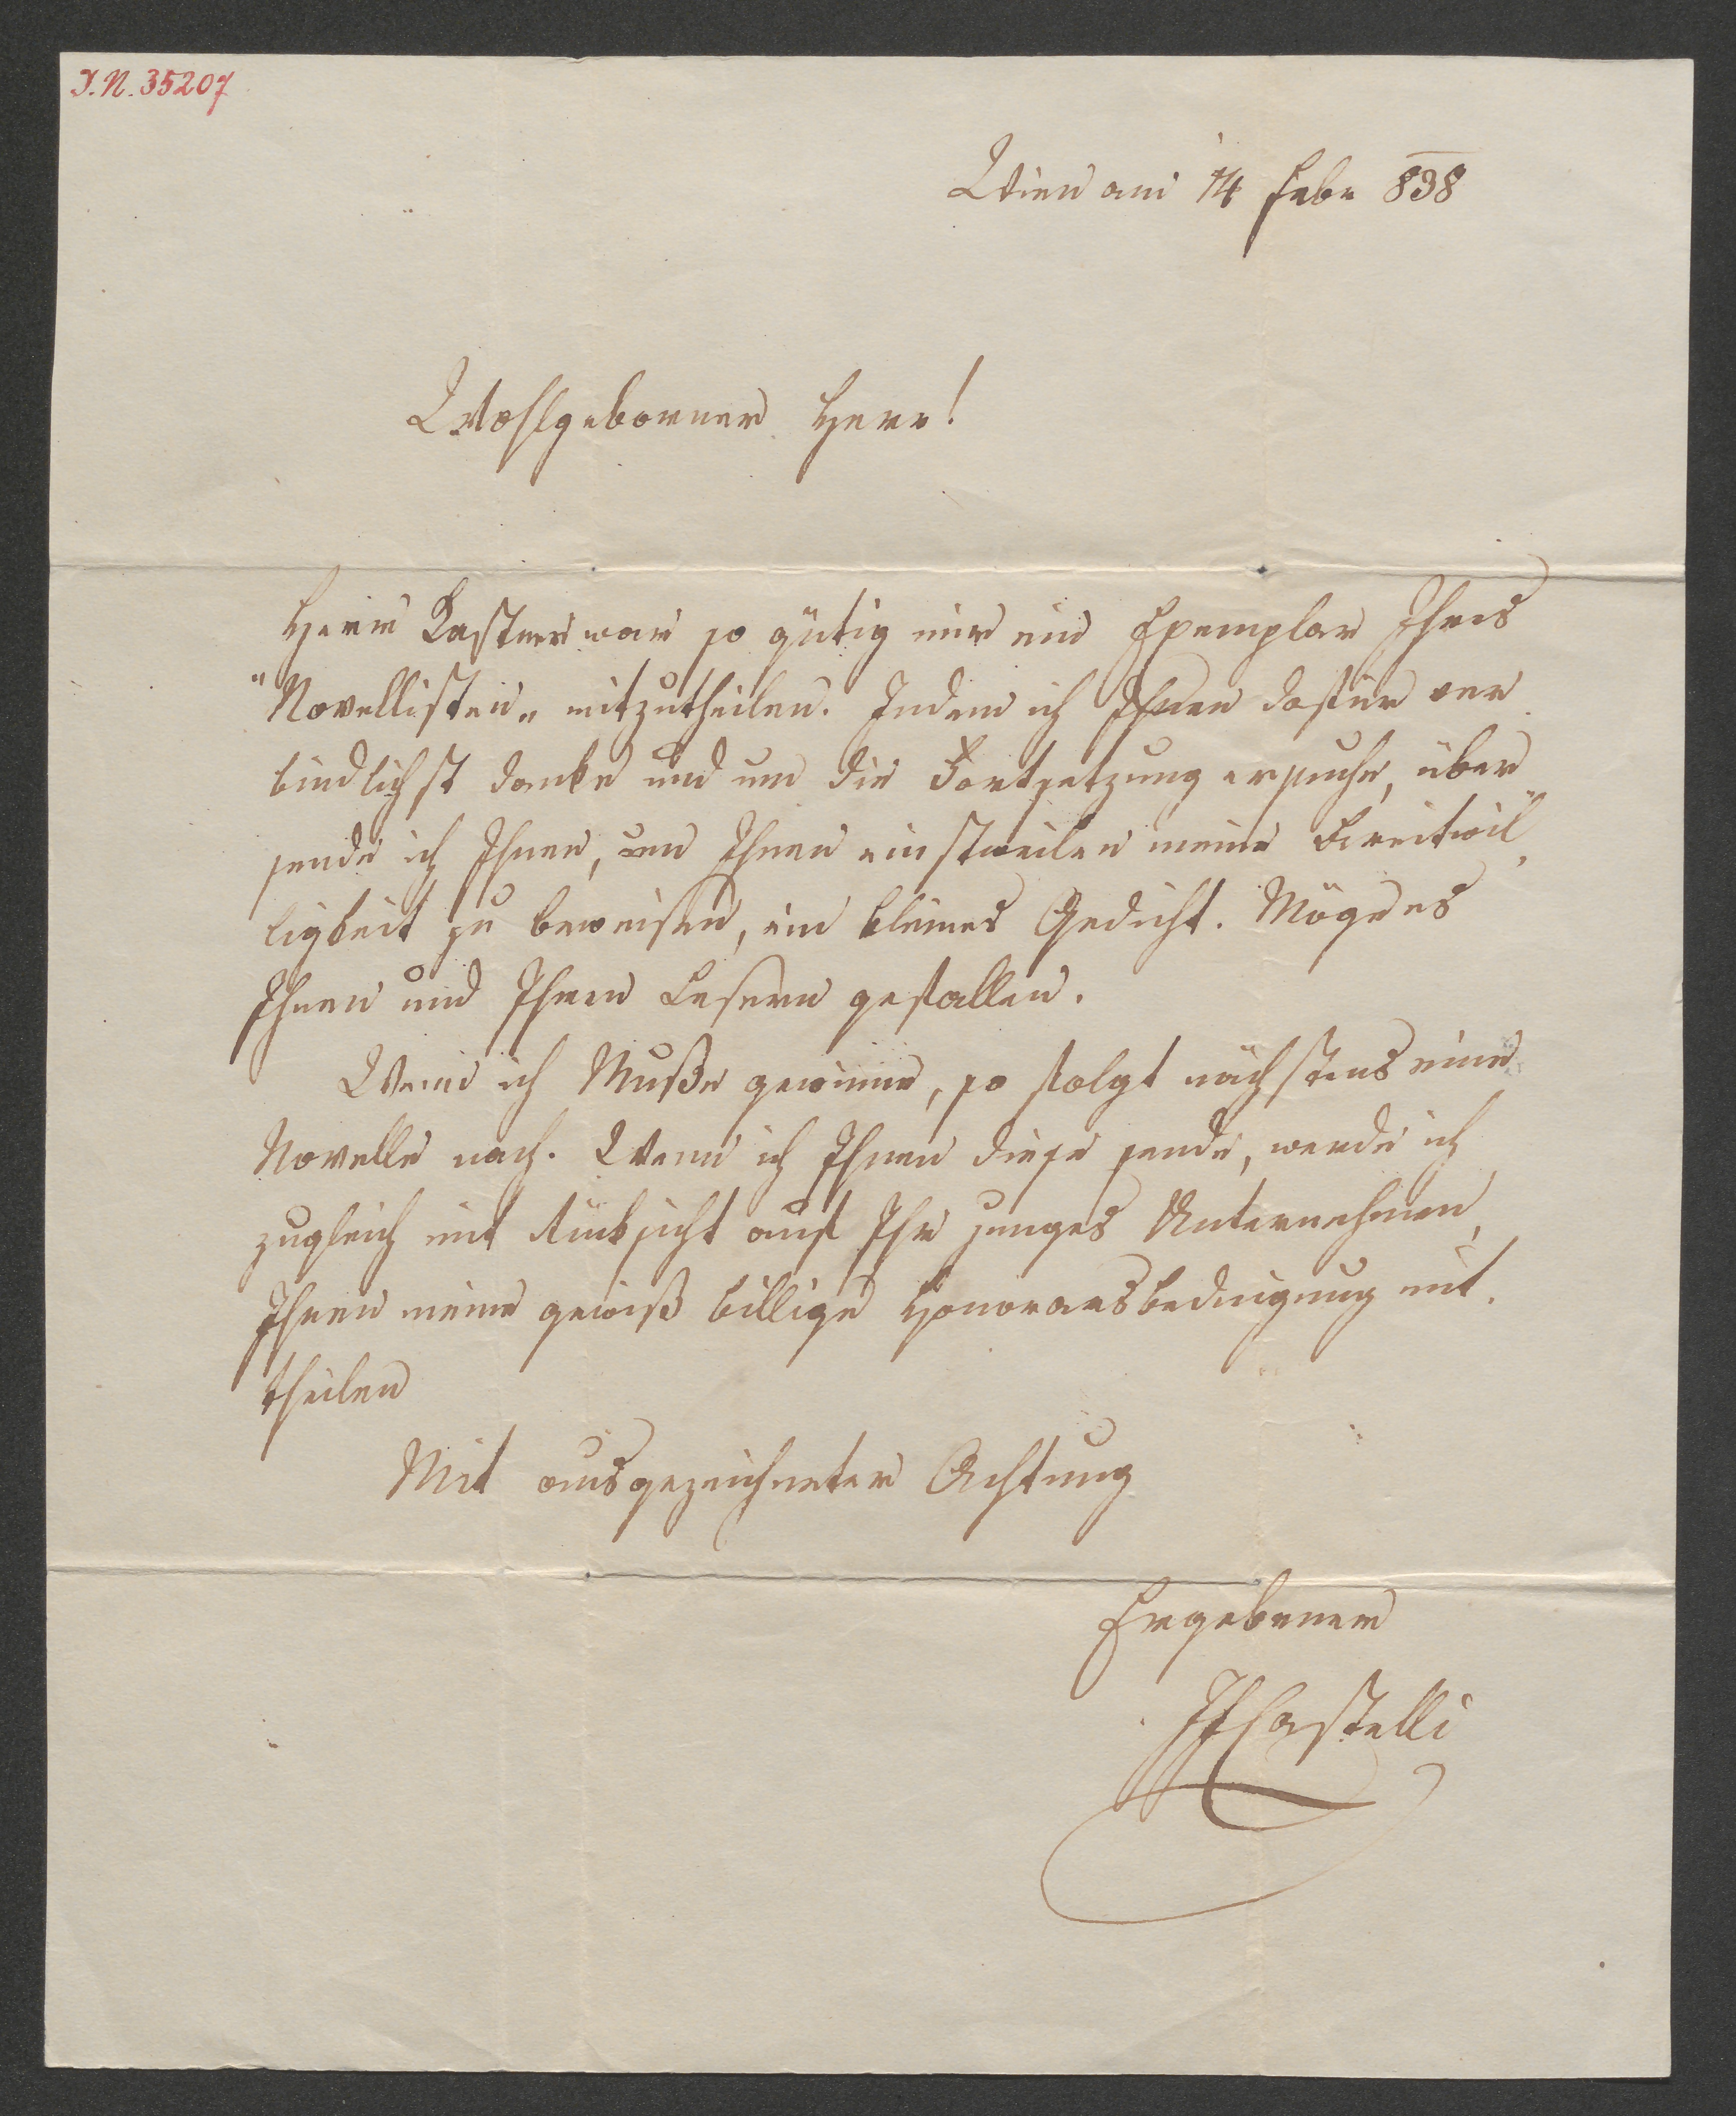 I.N. 35207
Wien am 14 Febr 838
Wohlgeborner Herr!
Herr Kastner war so gütig mir ein Exemplar Ihres
"Novellisten" mitzutheilen. Indem ich Ihnen dafür ver
bindlichst danke und um die Fortsetzung ersuche, über
sende ich Ihnen, um Ihnen einstweilen meine Bereitwil
ligkeit zu beweisen, ein kleines Gedicht. Möge es
Ihnen und Ihren Lesern gefallen.
Wenn ich Muße gewinne, so folgt nächstens eine
Novelle nach. Wenn ich Ihnen diese sende, werde ich
zugleich mit Rücksicht auf Ihr junges Unternehmen,
Ihnen meine gewiß billige Honorarsbedingung mit.
theilen
Mit ausgezeichneter Achtung
Ergebener
IFCastelli